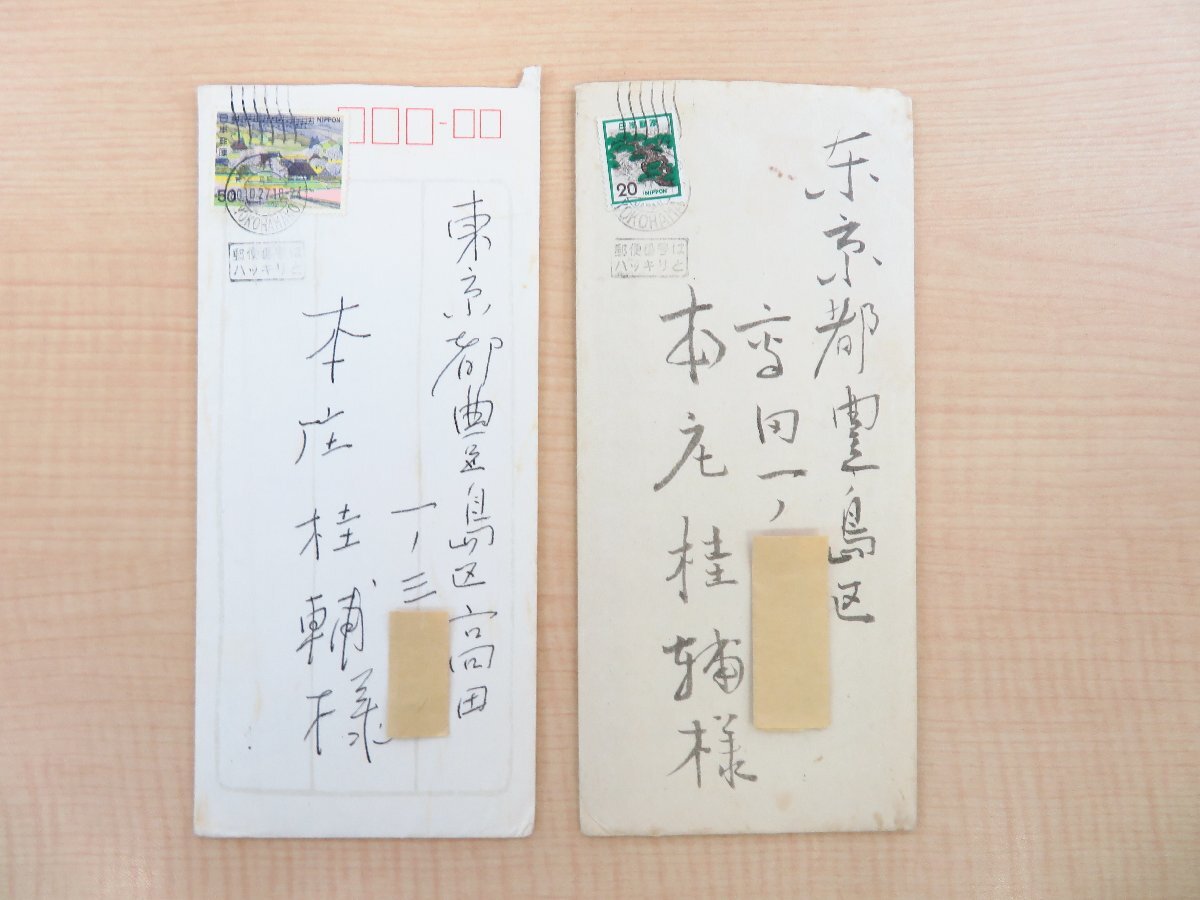 NIPPON
日本郵便
50
YOKOHAMA
郵便番号は
ハッキリと
東京都豊島区高田
一ノ三
本庄桂輔様
日本郵便
20
NIPPON
YOKOHAMA
郵便番号は
ハッキリと
东京都豊島区
高田一ノ
本庄桂輔様